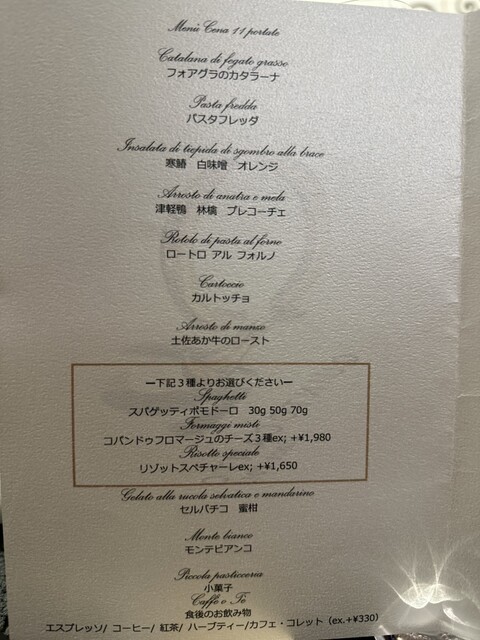 Menù Cena 11 portate
Catalana di fegato grasso
フォアグラのカタラーナ
Pasta fredda
パスタフレッダ
Insalata di tiepida di sgombro alla brace
寒鰆 白味噌 オレンジ
Arrosto di anatra e mela
津軽鴨 林檎 プレコーチェ
Rotolo di pasta al forno
ロートロ アル フォルノ
Cartoccio
カルトッチョ
Arrosto di manzo
土佐あか牛のロースト
ー下記3種よりお選びくださいー
Spaghetti
スパゲッティポモドーロ 30g 50g 70g
Formaggi misti
コパンドゥフロマージュのチーズ3種ex; +¥1,980
Risotto speciale
リゾットスペチャーレex; +¥1,650
Gelato alla rucola selvatica e mandarino
セルバチコ 蜜柑
Monte bianco
モンテビアンコ
Piccola pasticceria
小菓子
Caffè o Tè
食後のお飲み物
エスプレッソ/ コーヒー/ 紅茶/ ハーブティー/カフェ・コレット (ex.+¥330)